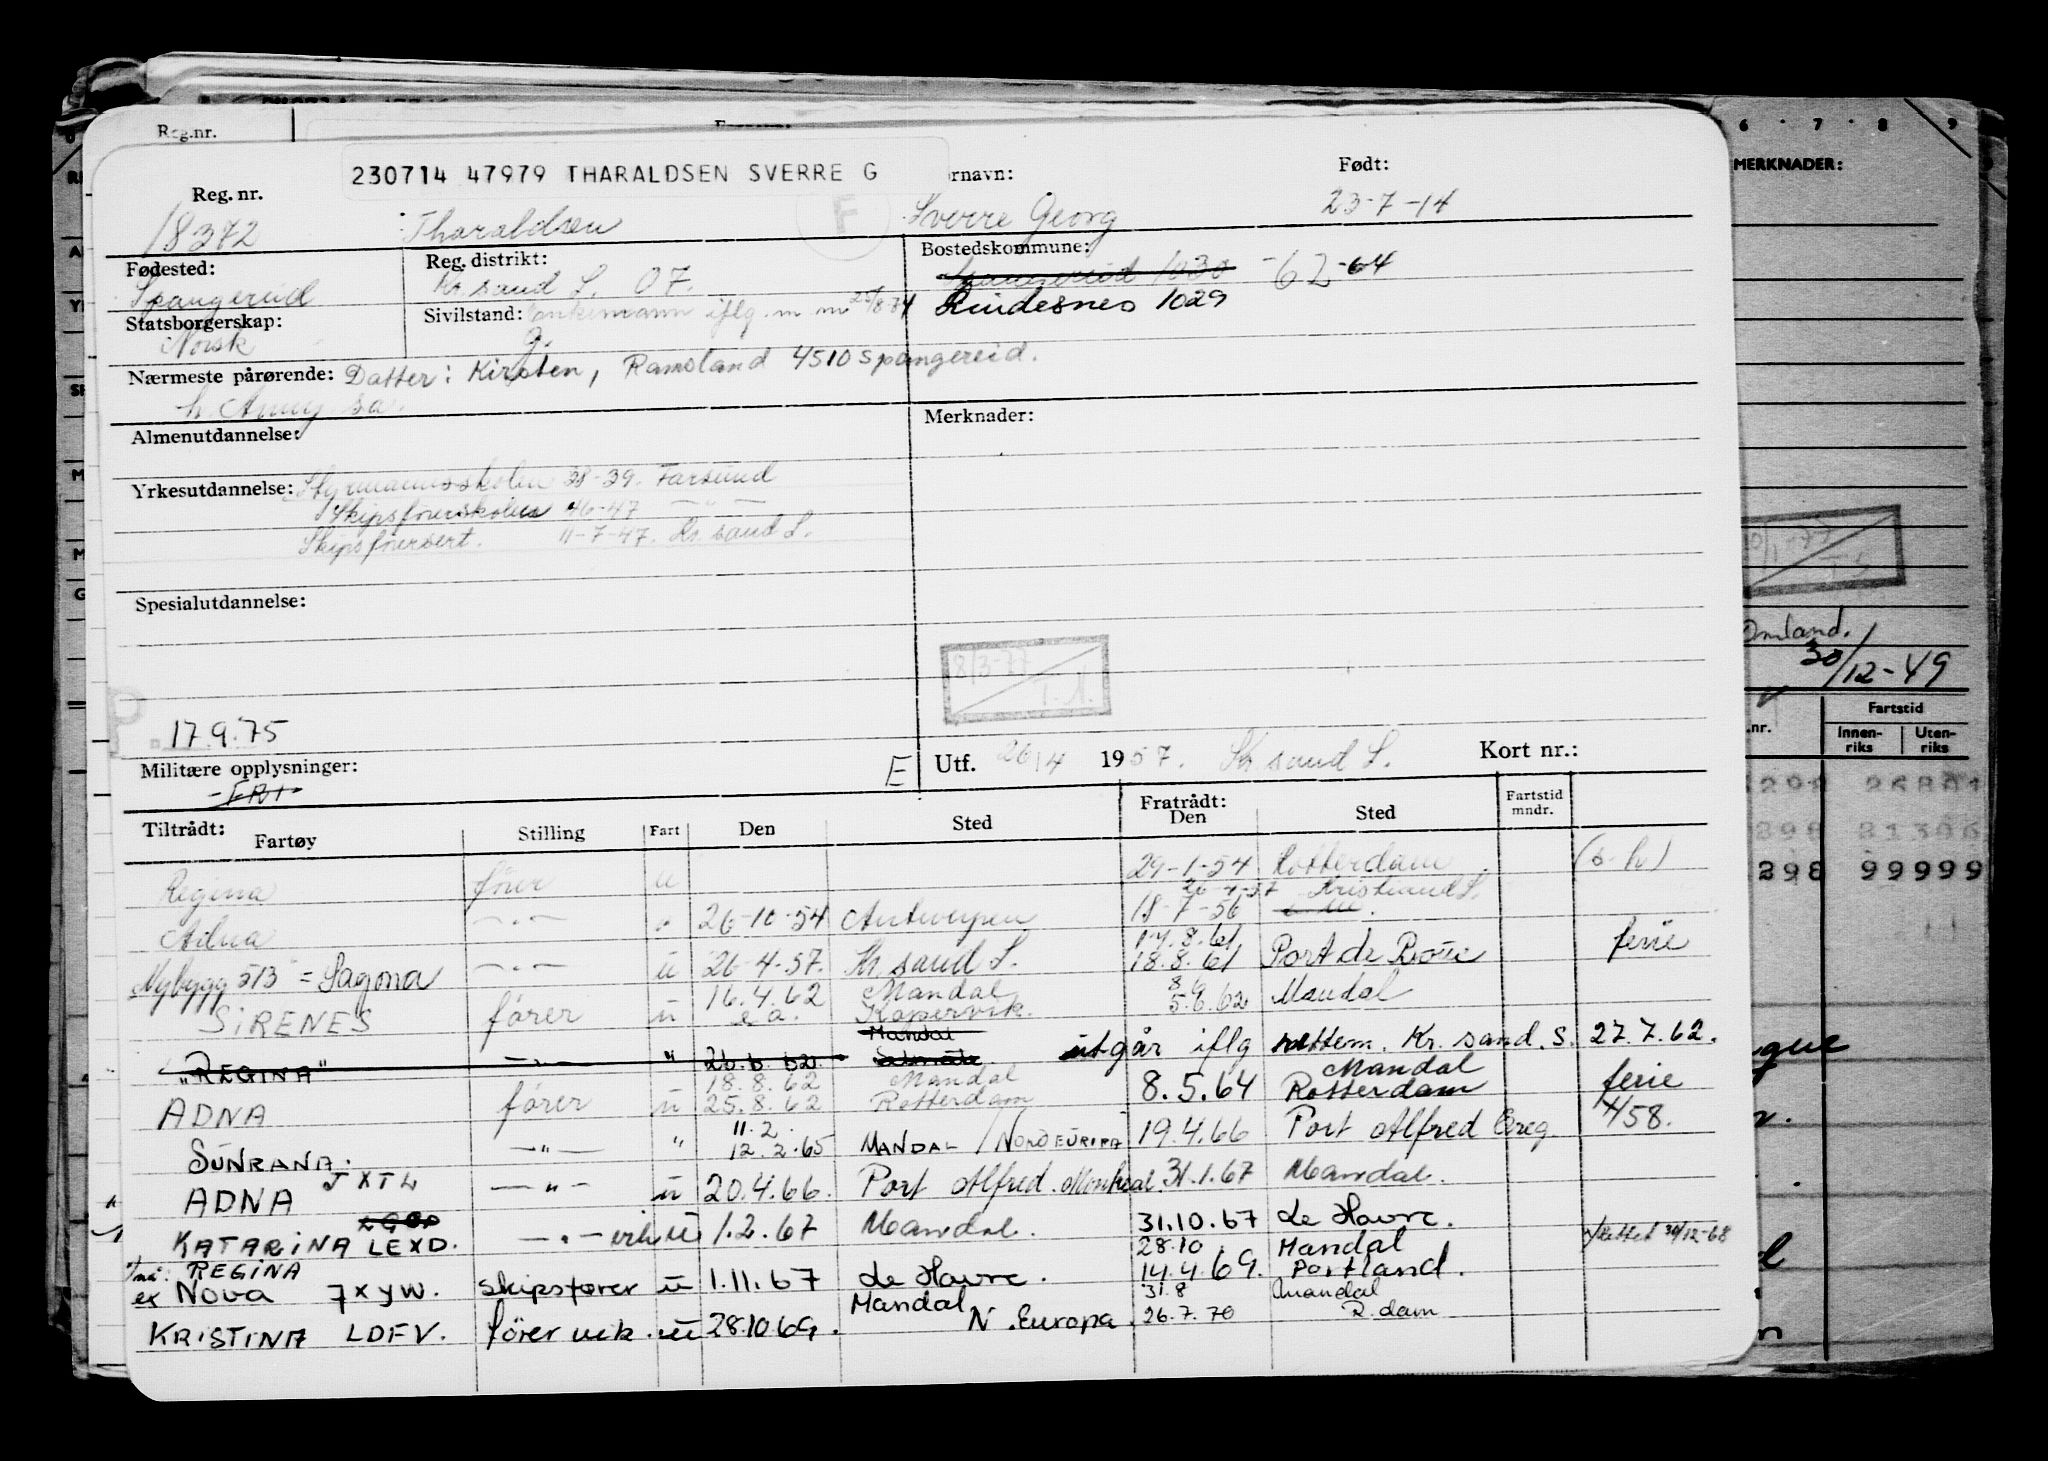 Reg.nr.
230714 47979 THARALDSEN SVERRE G
rnavn:
Født:
Reg. nr.
18372
Tharaldsen
F
Sverre Georg
23-7-14
Fødested:
Spangereid
Reg. distrikt:
Kr. sand S. 07.
Bostedskommune:
Spangereid 1030 -62-64
Lindesnes 1029
Statsborgerskap:
Norsk
Sivilstand: Enkemann iflg. m
g.
Nærmeste pårørende: Datter: Kirsten, Ramsland 4510 Spangereid.
h. Anny sa.
Almenutdannelse:
Merknader:
Yrkesutdannelse: Styrmannsskolen 38-39. Farsund
Skipsførerskolen 46-47 — " —
Skipsførersert. 11-7-47. Kr. sand S.
Spesialutdannelse:
8/3-77
T.A.
17.9.75
Militære opplysninger:
-FRI-
E
Utf. 26/4 1957. Kr. sand S.
Kort nr.:
Tiltrådt:
Fartøy
Stilling
Fart
Den
Sted
Fratrådt:
Den
Sted
Fartstid
mndr.
Regina fører u 29-1-54 Rotterdam (s.h)
26-4-57 Kristiansand S.
Adna — " — " 26-10-54 Antwerpen 18-7-56
17.8.61
Nybygg 513 = Sagona — " — u 26-4-57. Kr. sand S. 18.8.61 Port de Boue ferie
16.4.62 Mandal 8.6
SIRENES fører u e.a. Kopervik. 5.6.62 Mandal
Mandal
"REGINA" — " — " 26.6.62 utgår iflg rettem. Kr. sand. S. 27.7.62.
18.8.62 Mandal Mandal
ADNA fører u 25.8.62 Rotterdam 8.5.64 Rotterdam ferie
11.2.
SUNRANA. — " — " 12.2.65 MANDAL / NORD EUROPA 19.4.66 Port Alfred Ereg. 458.
ADNA JXTL — " — u 20.4.66. Port Alfred. Montreal. 31.1.67 Mandal.
KATARINA LEXD. — " — vik u 1.2.67 Mandal. 31.10.67 Le Havre.
28.10. Mandal Rettet 30/12-68
nå: REGINA
ex NOVA JXYW. skipsfører u 1.11.67 Le Havre. 14.4.69. Portland.
Mandal 31.8 Mandal
KRISTINA LDFV. fører vik. u 28.10 69. N. Europa. 26.7.70 R.dam
6 7 8 9
MERKNADER:
Omland.
30/12-49
.nr.
Fartstid
Innen-
riks
Uten-
riks
298 26801
298 99999